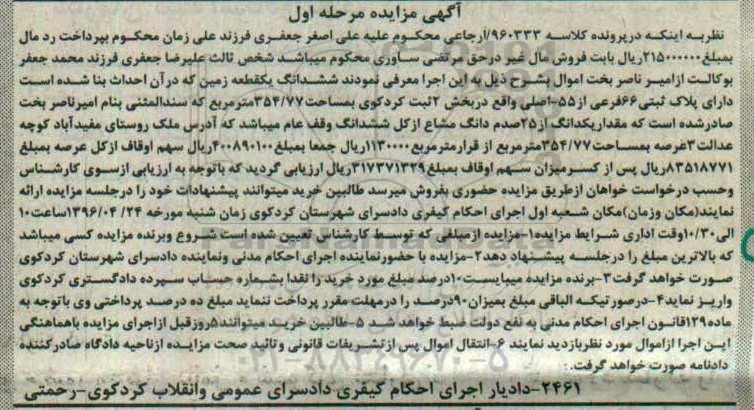 آگهی مزایده مرحله اول
نظربه اینکه درپرونده کلاسه ۹۶۰۳۳۳/ارجاعی محکوم علیه علی اصغر جعفری فرزند علی زمان محکوم بپرداخت رد مال
بمبلغ۲۱۵۰۰۰۰۰۰ریال بابت فروش مال غیر درحق مرتضی ساوری محکوم میباشد شخص ثالث علیرضا جعفری فرزند محمد جعفر
بوکالت ازامیر ناصر بخت اموال بشرح ذیل به این اجرا معرفی نمودند ششدانگ یکقطعه زمین که درآن احداث بنا شده است
دارای پلاک ثبتی۶۶فرعی از۵۵-اصلی واقع دربخش ۲ثبت کردکوی بمساحت۳۵۴/۷۷مترمربع که سندالمثنی بنام امیرناصر بخت
صادرشده است که مقداریکدانگ از۲۵صدم دانگ مشاع ازکل ششدانگ وقف عام میباشد که آدرس ملک روستای مفیدآباد کوچه
عدالت۳عرصه بمساحت۳۵۴/۷۷مترمربع از قرارمترمربع۱۱۳۰۰۰۰ریال جمعا بمبلغ۴۰۰۸۹۰۱۰۰ریال سهم اوقاف ازکل عرصه بمبلغ
۸۳۵۱۸۷۷۱ریال پس از کسرمیزان سهم اوقاف بمبلغ۳۱۷۳۷۱۳۲۹ریال ارزیابی گردید که باتوجه به ارزیابی ازسوی کارشناس
وحسب درخواست خواهان ازطریق مزایده حضوری بفروش میرسد طالبین خرید میتوانند پیشنهادات خود را درجلسه مزایده ارائه
نمایند(مکان وزمان)مکان شعبه اول اجرای احکام کیفری دادسرای شهرستان کردکوی زمان شنبه مورخه ۲۴/ ۱۳۹۶/۰۴ساعت۱۰
الی۱۰/۳۰وقت اداری شرایط مزایده۱-مزایده ازمبلغی که توسط کارشناس تعیین شده است شروع وبرنده مزایده کسی میباشد
که بالاترین مبلغ را درجلسه پیشنهاد دهد۲-مزایده با حضورنماینده اجرای احکام مدنی ونماینده دادسرای شهرستان کردکوی
صورت خواهد گرفت۳-برنده مزایده میبایست۱۰درصد مبلغ مورد خرید را نقدا بشماره حساب سپرده دادگستری کردکوی
واریز نماید۴-درصورتیکه الباقی مبلغ بمیزان۹۰درصد را درمهلت مقرر پرداخت ننماید مبلغ ده درصد پرداختی وی باتوجه به
ماده۱۲۹قانون اجرای احکام مدنی به نفع دولت ضبط خواهد شد ۵-طالبین خرید میتوانند۵روزقبل ازاجرای مزایده باهماهنگی
این اجرا ازاموال مورد نظربازدید نمایند ۶-انتقال اموال پس ازتشریفات قانونی وتائید صحت مزایده ازناحیه دادگاه صادرکننده
دادنامه صورت خواهد گرفت.
۲۴۶۱-دادیار اجرای احکام کیفری دادسرای عمومی وانقلاب کردکوی-رحمتی
ParsNamadData
۰۲۱-۸۸۳۴۹۶۷۰-۵